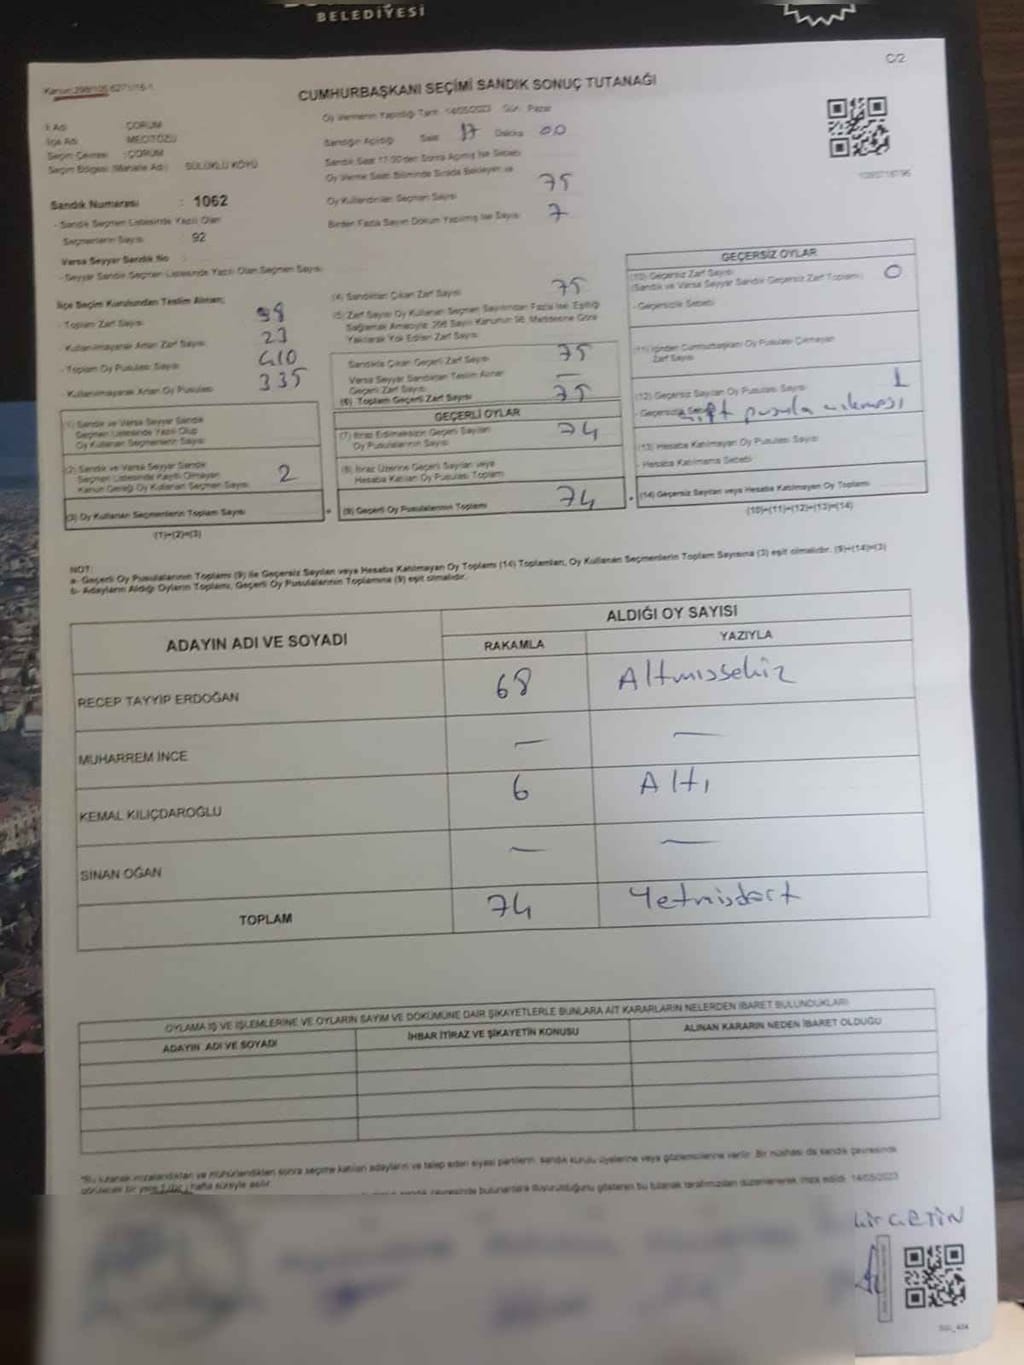 BELEDİYESİ
C/2
CUMHURBAŞKANI SEÇİMİ SANDIK SONUÇ TUTANAĞI
Oy Vermenin Yapıldığı Tarih : 14/05/2023 Gün : Pazar
İl Adı : ÇORUM
İlçe Adı : MECİTÖZÜ
Seçim Çevresi : ÇORUM
Seçim Bölgesi (Mahalle Adı) : SÜLÜKLÜ KÖYÜ
Sandığın Açıldığı Saat 17 Dakika 00
Sandık Saat 17:00'den Sonra Açılmış İse Sebebi
Oy Verme Saati Bitiminde Sırada Bekleyen ve
Oy Kullandırılan Seçmen Sayısı 75
Birden Fazla Sayım Döküm Yapılmış İse Sayısı 7
Sandık Numarası : 1062
- Sandık Seçmen Listesinde Yazılı Olan
Seçmenlerin Sayısı 92
Varsa Seyyar Sandık No
- Seyyar Sandık Seçmen Listesinde Yazılı Olan Seçmen Sayısı
İlçe Seçim Kurulundan Teslim Alınan;
- Toplam Zarf Sayısı 98
- Kullanılmayarak Artan Zarf Sayısı 23
- Toplam Oy Pusulası Sayısı 410
- Kullanılmayarak Artan Oy Pusulası 335
(1) Sandık ve Varsa Seyyar Sandık
Seçmen Listesinde Yazılı Olup
Oy Kullanan Seçmenlerin Sayısı
(2) Sandık ve Varsa Seyyar Sandık
Seçmen Listesinde Kayıtlı Olmayan
Kanun Gereği Oy Kullanan Seçmen Sayısı 2
(3) Oy Kullanan Seçmenlerin Toplam Sayısı
(1)+(2)=(3)
(4) Sandıktan Çıkan Zarf Sayısı 75
(5) Zarf Sayısı Oy Kullanan Seçmen Sayısından Fazla İse, Eşitliği
Sağlamak Amacıyla 298 Sayılı Kanunun 98. Maddesine Göre
Yakılarak Yok Edilen Zarf Sayısı
Sandıkta Çıkan Geçerli Zarf Sayısı 75
Varsa Seyyar Sandıktan Teslim Alınan
Geçerli Zarf Sayısı —
(6) Toplam Geçerli Zarf Sayısı 75
GEÇERLİ OYLAR
(7) İtiraz Edilmeksizin Geçerli Sayılan
Oy Pusulalarının Sayısı 74
(8) İtiraz Üzerine Geçerli Sayılan veya
Hesaba Katılan Oy Pusulası Toplamı
(9) Geçerli Oy Pusulalarının Toplamı 74
GEÇERSİZ OYLAR
(10) Geçersiz Zarf Sayısı
(Sandık ve Varsa Seyyar Sandık Geçersiz Zarf Toplamı) 0
- Geçersizlik Sebebi
(11) İçinden Cumhurbaşkanı Oy Pusulası Çıkmayan
Zarf Sayısı
(12) Geçersiz Sayılan Oy Pusulası Sayısı 1
çift pusula çıkması
(13) Hesaba Katılmayan Oy Pusulası Sayısı
- Hesaba Katılmama Sebebi
(14) Geçersiz Sayılan veya Hesaba Katılmayan Oy Toplamı
(10)+(11)+(12)+(13)=(14)
NOT:
a- Geçerli Oy Pusulalarının Toplamı (9) ile Geçersiz Sayılan veya Hesaba Katılmayan Oy Toplamı (14) Toplamları, Oy Kullanan Seçmenlerin Toplam Sayısına (3) eşit olmalıdır. (9)+(14)=(3)
b- Adayların Aldığı Oyların Toplamı, Geçerli Oy Pusulalarının Toplamına (9) eşit olmalıdır.
ADAYIN ADI VE SOYADI
ALDIĞI OY SAYISI
RAKAMLA YAZIYLA
RECEP TAYYİP ERDOĞAN 68 Altmışsekiz
MUHARREM İNCE — —
KEMAL KILIÇDAROĞLU 6 Altı
SİNAN OĞAN — —
TOPLAM 74 Yetmişdört
OYLAMA İŞ VE İŞLEMLERİNE VE OYLARIN SAYIM VE DÖKÜMÜNE DAİR ŞİKAYETLERLE BUNLARA AİT KARARLARIN NELERDEN İBARET BULUNDUKLARI
ADAYIN ADI VE SOYADI İHBAR İTİRAZ VE ŞİKAYETİN KONUSU ALINAN KARARIN NEDEN İBARET OLDUĞU
*Bu tutanak imzalandıktan ve mühürlendikten sonra seçime katılan adayların ve talep eden siyasi partilerin sandık kurulu üyelerine veya gözlemcilerine verilir. Bir nüshası da sandık çevresinde
görülecek bir yere 1 (bir) hafta süreyle asılır.
ÇETİN